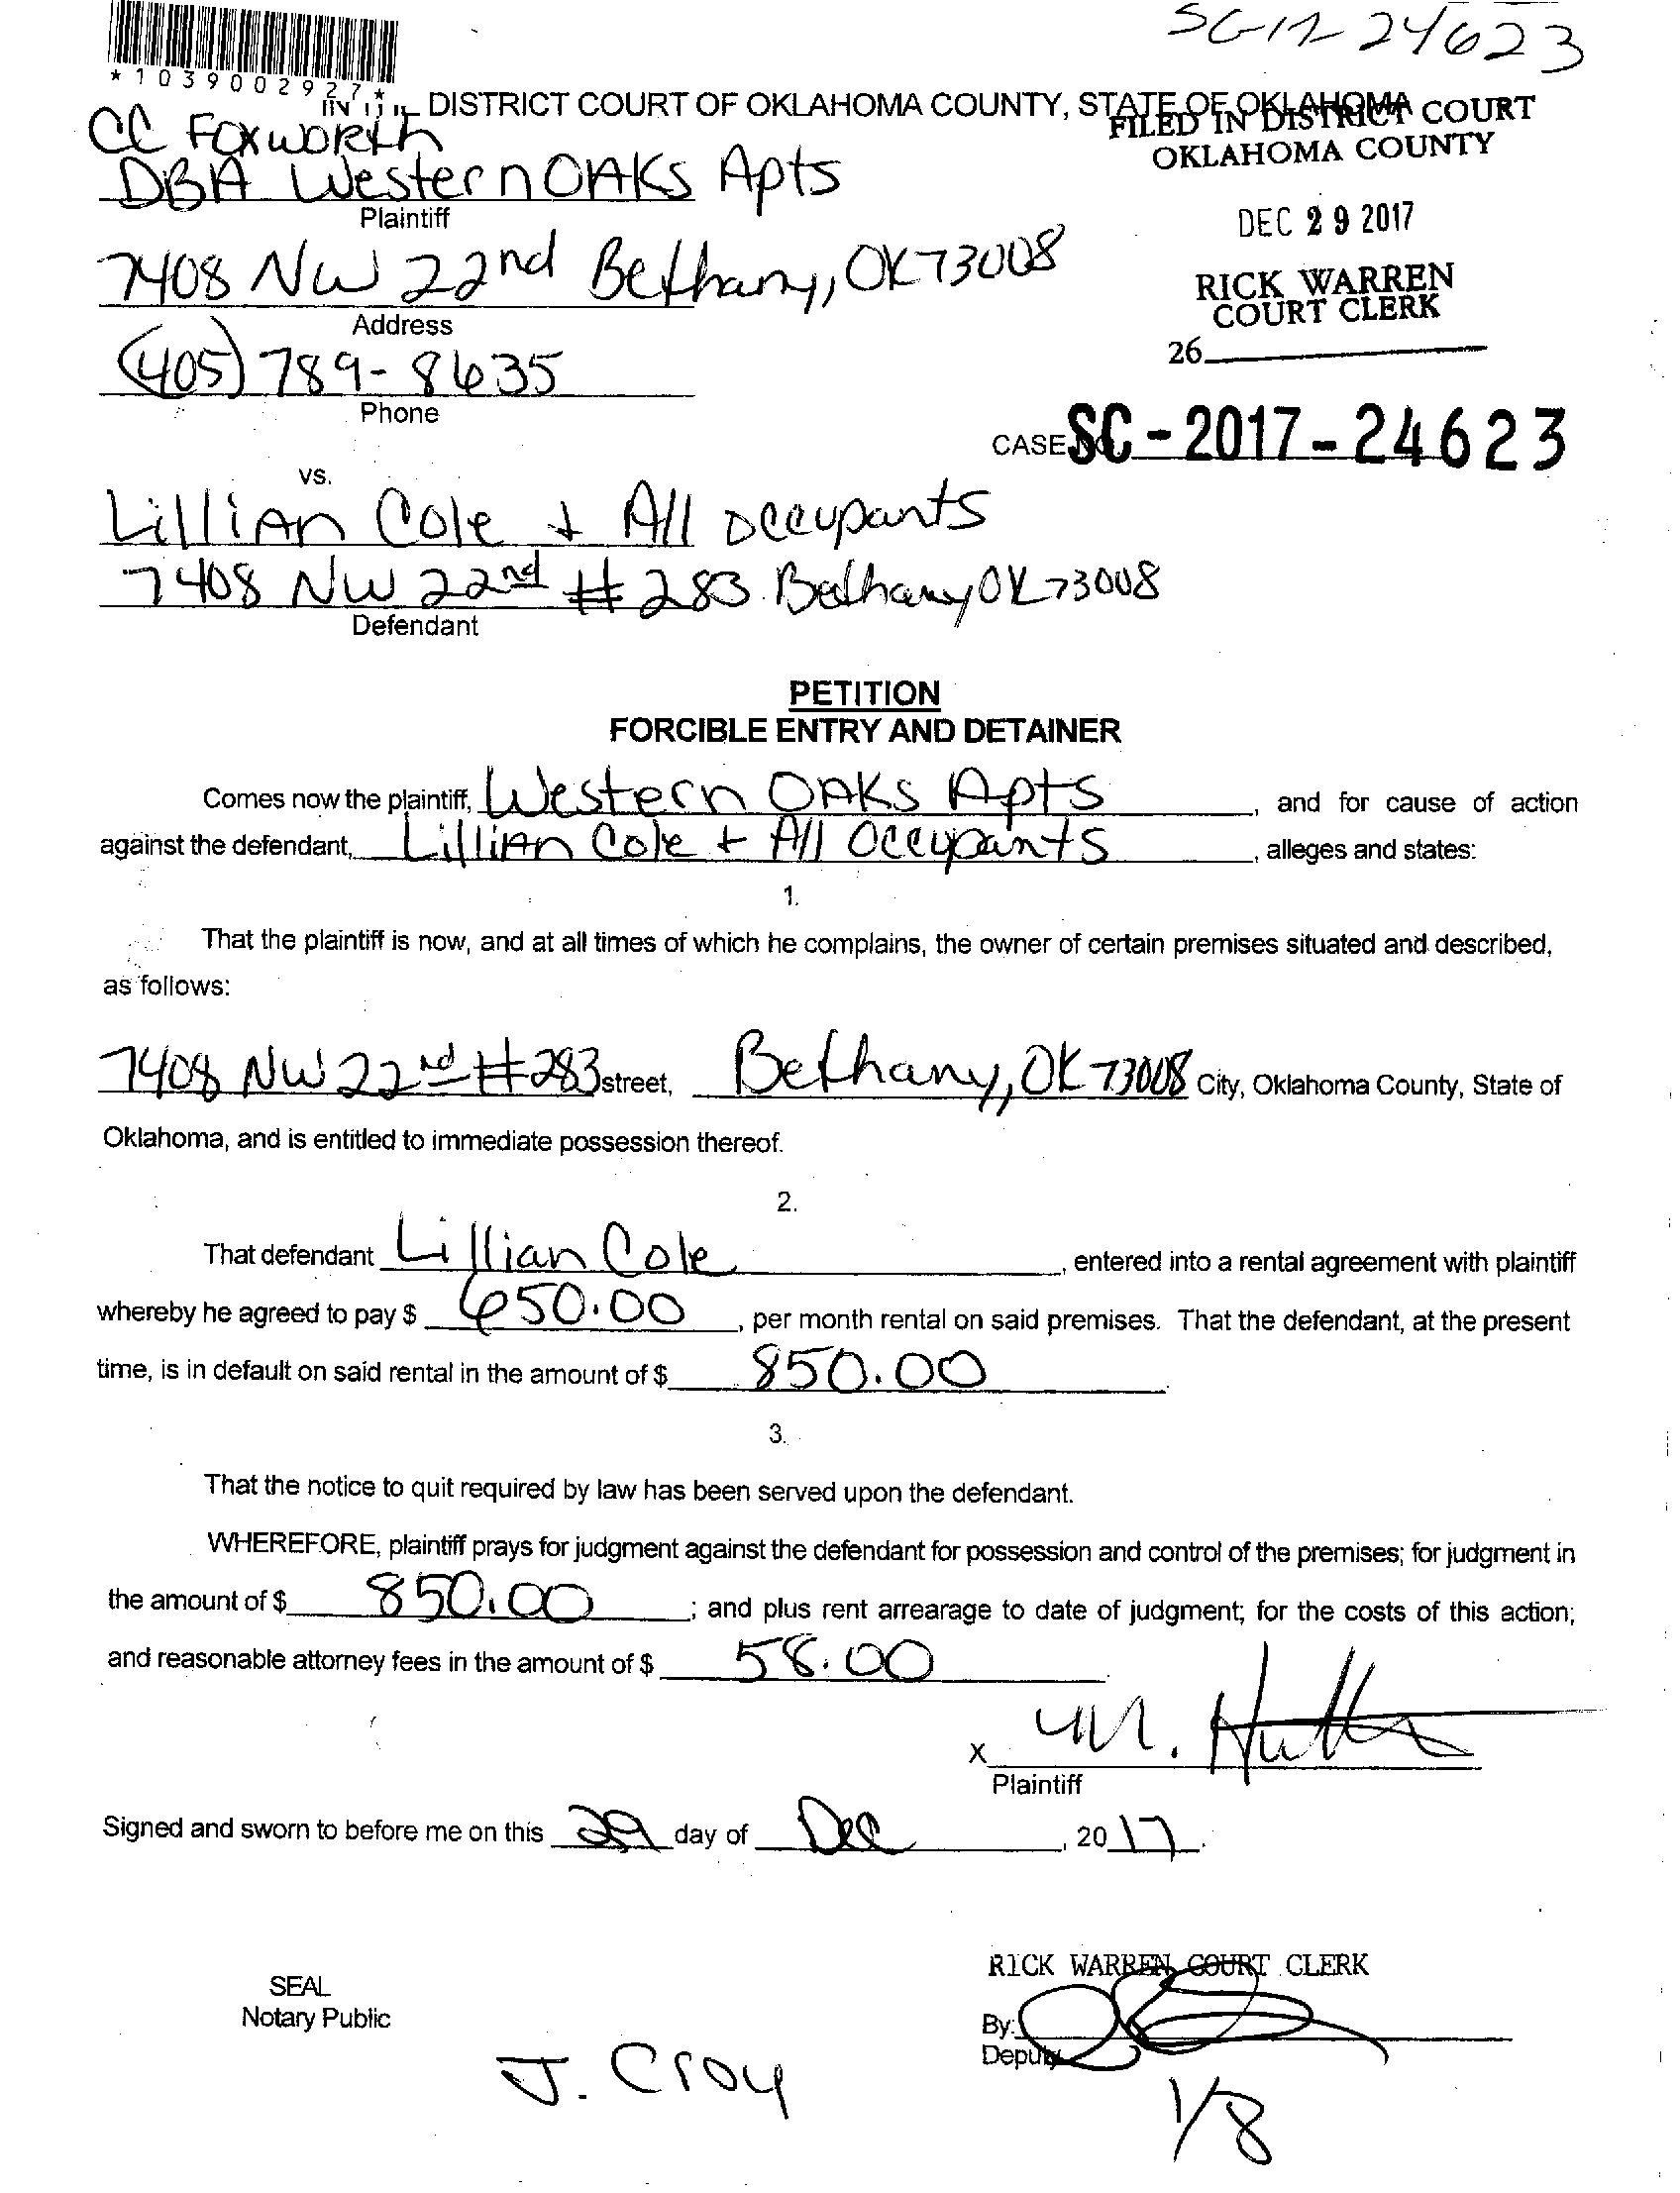 SC-17-24623
*1039002927*
IN THE DISTRICT COURT OF OKLAHOMA COUNTY, STATE OF OKLAHOMA
FILED IN DISTRICT COURT
OKLAHOMA COUNTY
CC Foxworth
DBA Western OAKS Apts
Plaintiff
DEC 29 2017
7408 NW 22nd Bethany, OK 73008
Address
RICK WARREN
COURT CLERK
26
(405) 789-8635
Phone
CASE NO. SC-2017-24623
vs.
Lillian Cole + All Occupants
7408 NW 22nd #283 Bethany OK 73008
Defendant
PETITION
FORCIBLE ENTRY AND DETAINER
Comes now the plaintiff, Western OAKS Apts, and for cause of action
against the defendant, Lillian Cole + All Occupants, alleges and states:
1.
That the plaintiff is now, and at all times of which he complains, the owner of certain premises situated and described,
as follows:
7408 NW 22nd #283 street, Bethany, OK 73008 City, Oklahoma County, State of
Oklahoma, and is entitled to immediate possession thereof.
2.
That defendant Lillian Cole, entered into a rental agreement with plaintiff
whereby he agreed to pay $ 650.00, per month rental on said premises. That the defendant, at the present
time, is in default on said rental in the amount of $ 850.00
3.
That the notice to quit required by law has been served upon the defendant.
WHEREFORE, plaintiff prays for judgment against the defendant for possession and control of the premises; for judgment in
the amount of $ 850.00; and plus rent arrearage to date of judgment; for the costs of this action;
and reasonable attorney fees in the amount of $ 58.00
x M.
Plaintiff
Signed and sworn to before me on this 29 day of Dec, 2017.
RICK WARREN COURT CLERK
SEAL
Notary Public
By:
Deputy
J. Croy
1/8